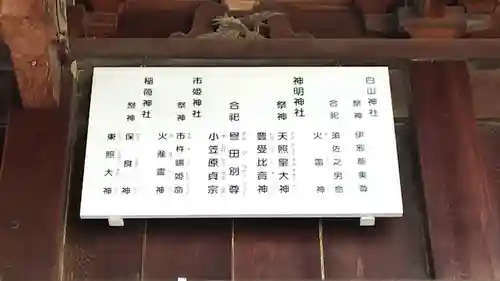 白山神社
祭神 伊弉諾美尊
合祀 須佐之男命
火雷神
神明神社
祭神 天照皇大神
豊受比売神
合祀 誉田別尊
小笠原貞宗
市姫神社
祭神 市杵嶋姫命
火産霊神
稲荷神社
祭神 保食神
東照大神